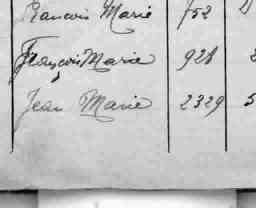 Francois Marie 752
François Marie 921
Jean Marie 2329 5